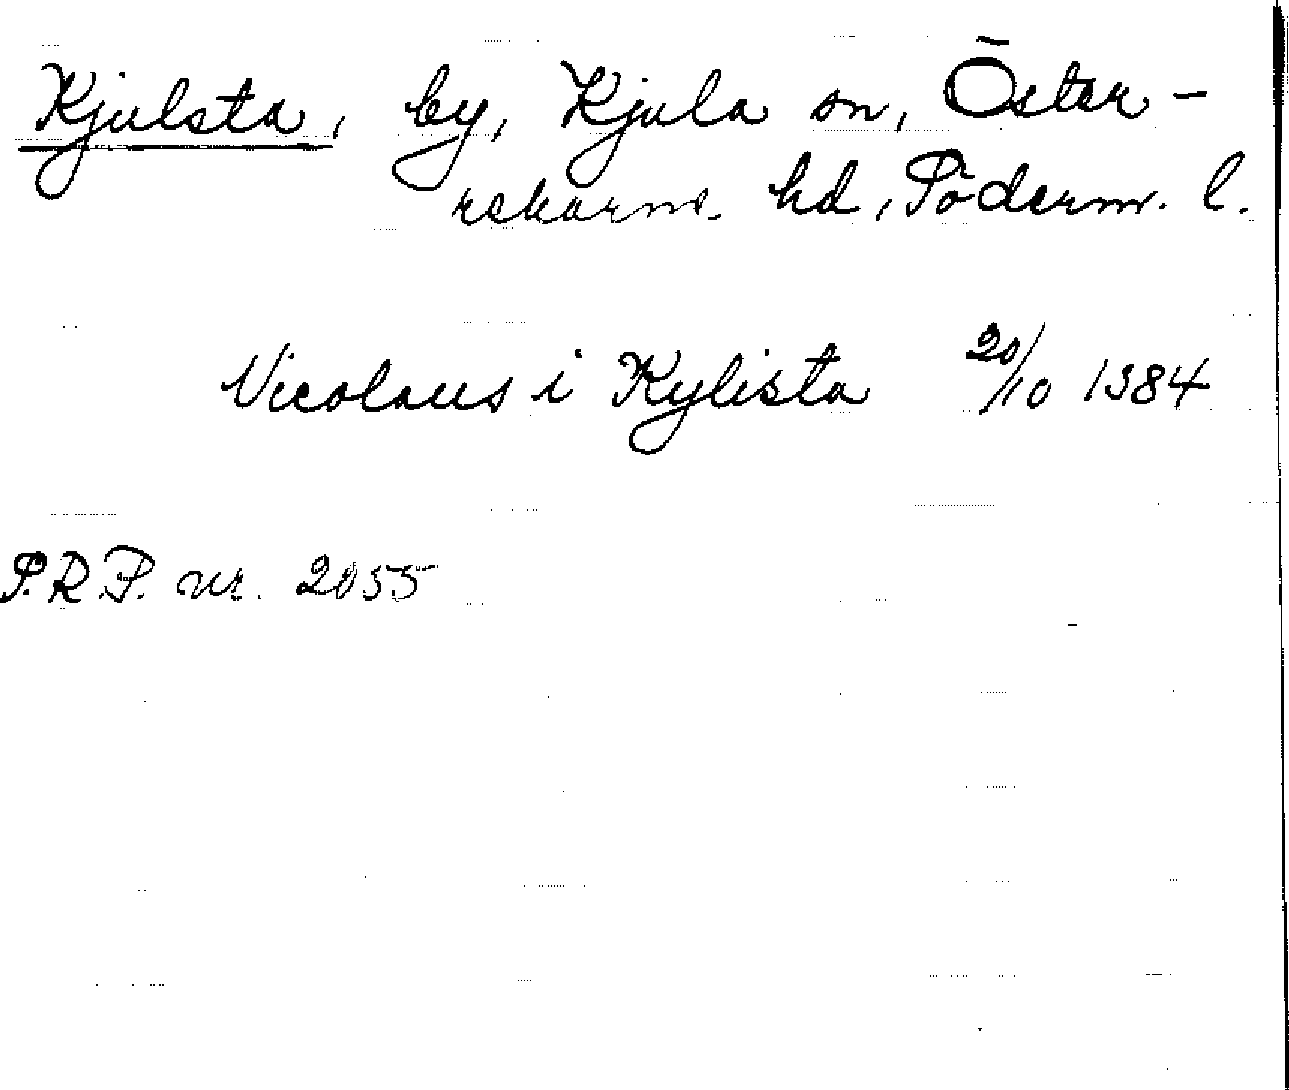 Kjulsta, by, Kjula sn, Öster-
rekarne hd, Söderm. l.
Nicolaus i Kylista 20/10 1384
S.R.P. nr. 2055